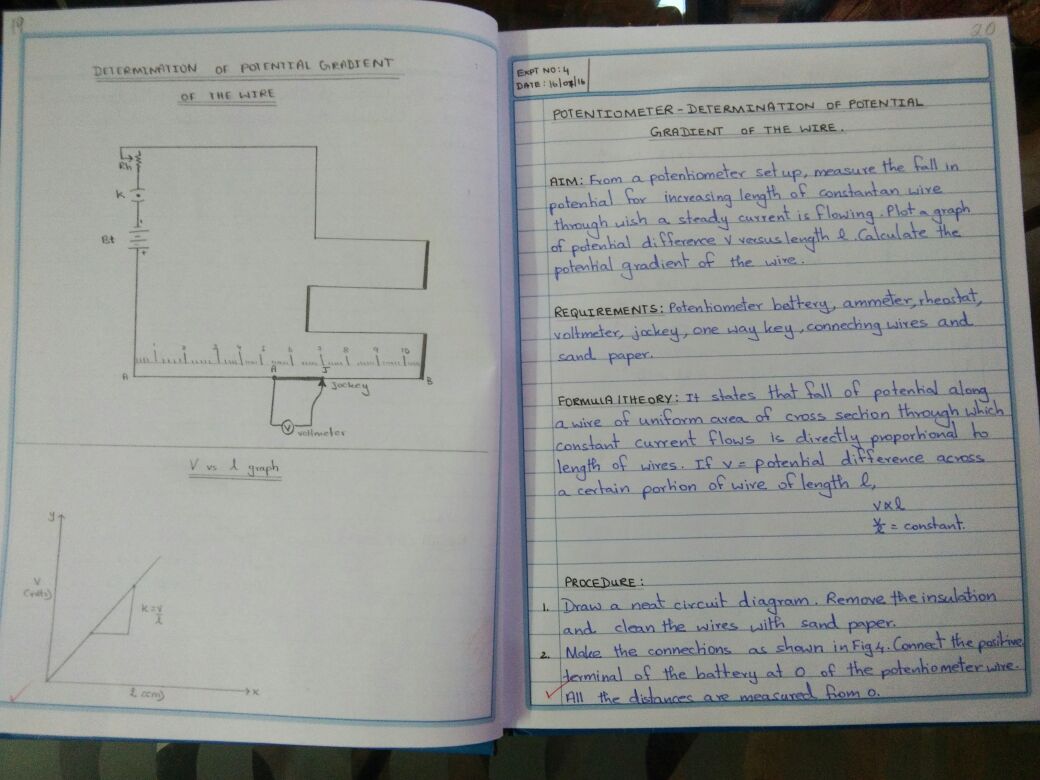 19
DETERMINATION OF POTENTIAL GRADIENT
OF THE WIRE
Rh
K
Bt
+
1 2 3 4 5 6 7 8 9 10
A
A
J
B
Jockey
V
voltmeter
V vs l graph
y
V
(volts)
k = v/l
l (cm)
x
20
EXPT NO: 4
DATE: 16/07/16
POTENTIOMETER - DETERMINATION OF POTENTIAL
GRADIENT OF THE WIRE.
AIM: From a potentiometer set up, measure the fall in
potential for increasing length of constantan wire
through wish a steady current is flowing. Plot a graph
of potential difference V versus length l. Calculate the
potential gradient of the wire.
REQUIREMENTS: Potentiometer battery, ammeter, rheostat,
voltmeter, jockey, one way key, connecting wires and
sand paper.
FORMULA/THEORY: It states that fall of potential along
a wire of uniform area of cross section through which
constant current flows is directly proportional to
length of wires. If v = potential difference across
a certain portion of wire of length l,
v∝l
v/l = constant.
PROCEDURE:
1. Draw a neat circuit diagram. Remove the insulation
and clean the wires with sand paper.
2. Make the connections as shown in Fig 4. Connect the positive
terminal of the battery at 0 of the potentiometer wire.
All the distances are measured from 0.